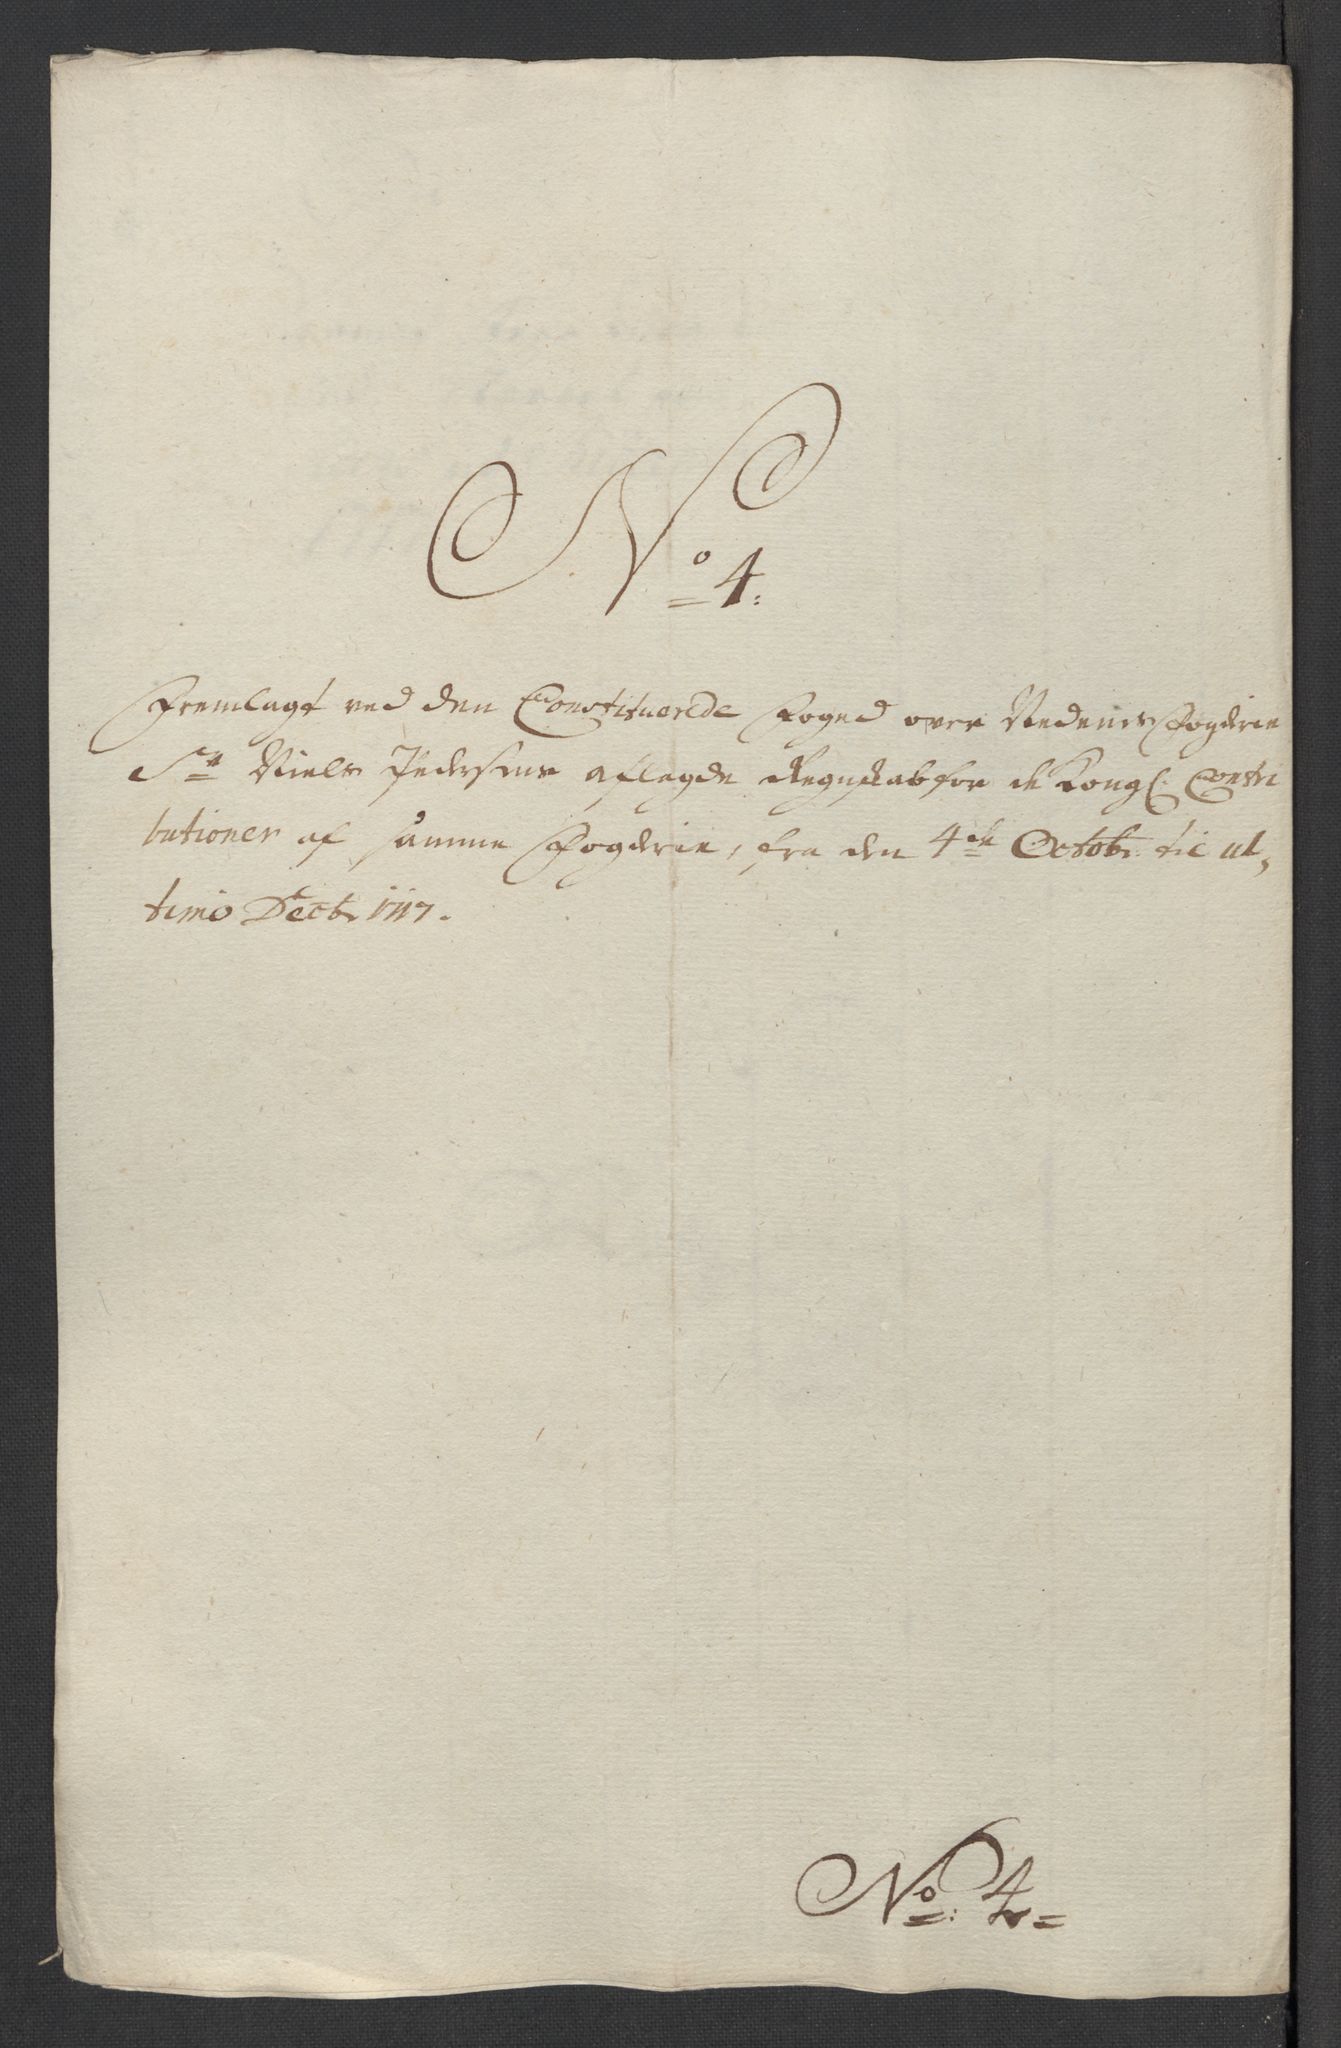 No 4:
Fremlagt ved den Constituerede Foged over Nedenes Fogderie
Sr Niels Pedersens aflegde Regnskab for de Kongl. Contri
butioner af samme Fogderie, fra den 4de Octobr til ul,
timo Decbr 1717.
No: 4=